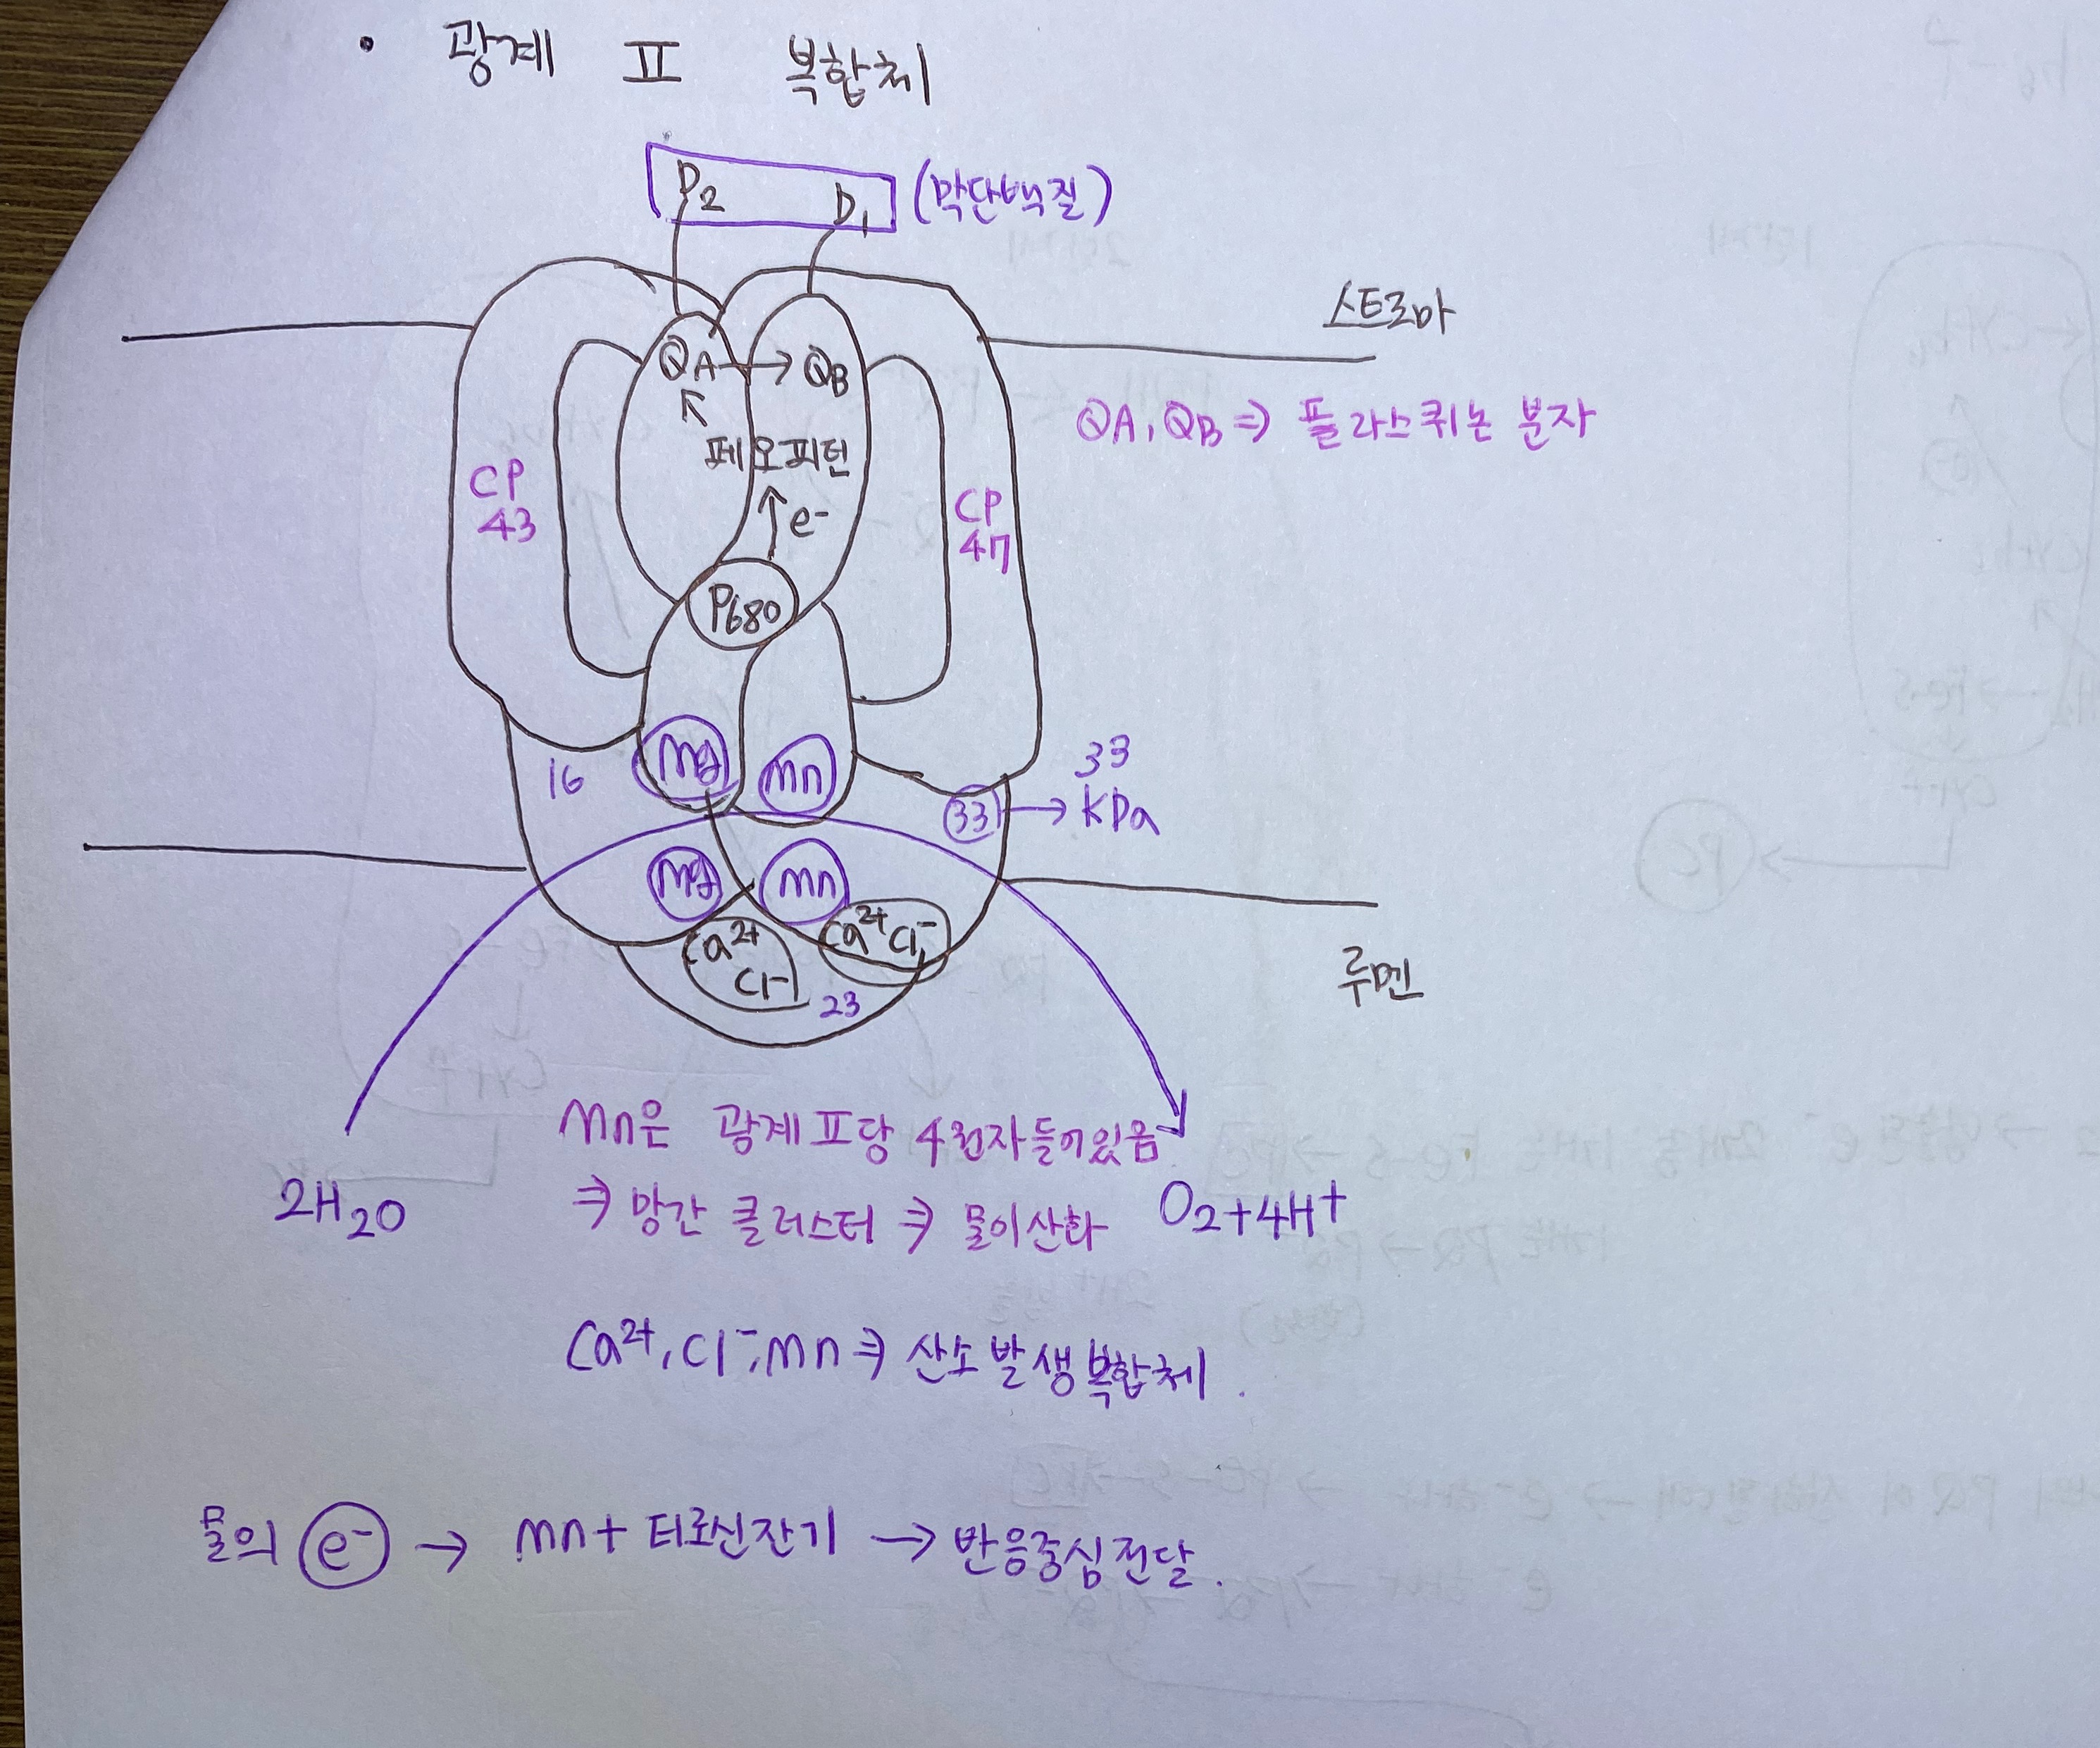 • 광계 II 복합체
D2 D1 (막단백질)
스트로마
QA → QB
QA, QB ⇒ 플라스퀴논 분자
페오피턴
CP
43
↑ e-
CP
47
P680
16
Mn
33
33 → KDa
Mn
루멘
Ca2+
Cl-
Ca2+ Cl-
23
Mn은 광계 II당 4원자들어있음
⇒ 망간 클러스터 ⇒ 물이산화
2H2O
O2+4H+
Ca2+, Cl-, Mn ⇒ 산소발생복합체.
물의 e- → Mn + 티로신잔기 → 반응중심전달.